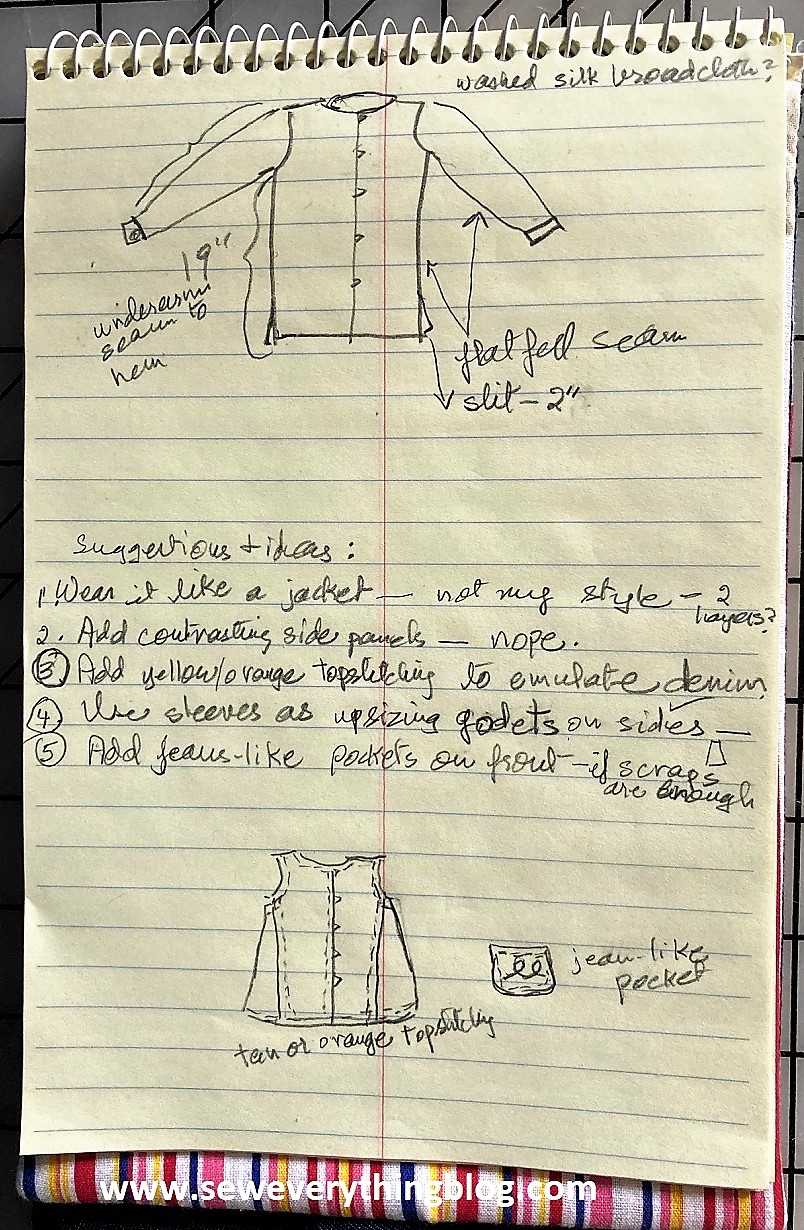 washed silk broadcloth?
19"
underarm
seam to
hem
flat fell seam
slit - 2"
Suggestions + ideas:
1. Wear it like a jacket — not my style - 2
layers?
2. Add contrasting side panels — nope.
3 Add yellow/orange topstitching to emulate denim
4. Use sleeves as upsizing godets on sides —
5 Add jeans-like pockets on front - if scraps
are enough
jean-like
pocket
tan or orange topstitching
www.seweverythingblog.com